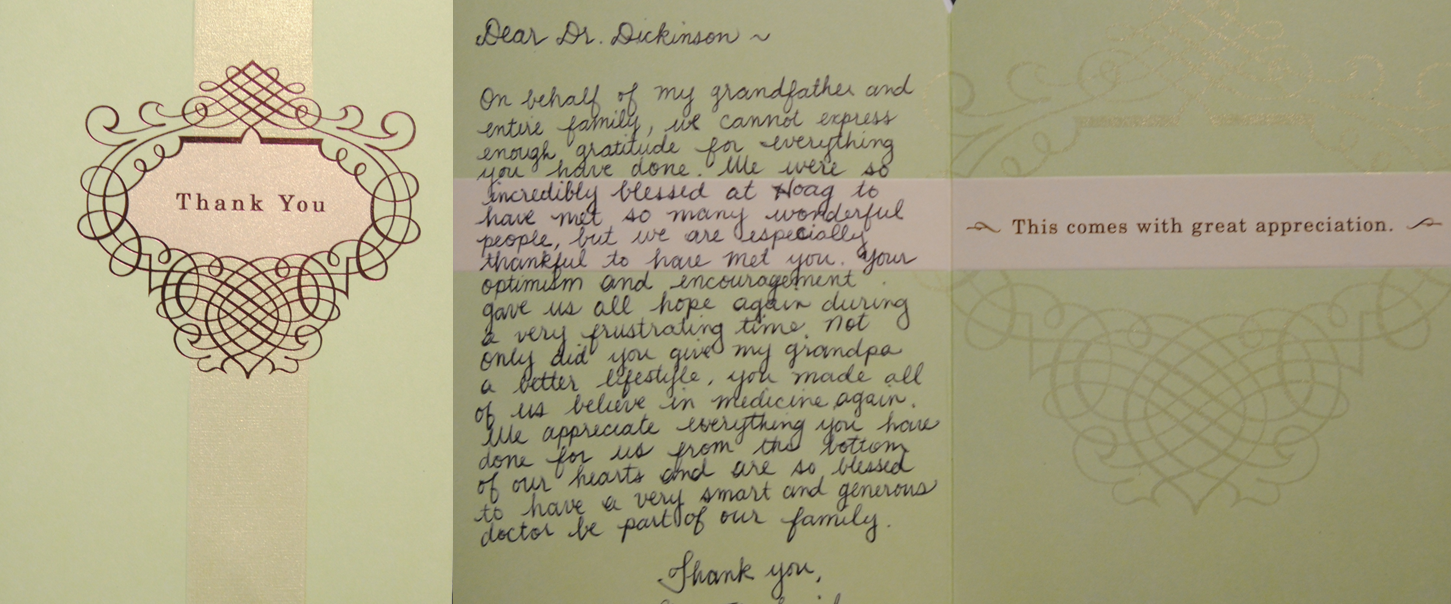 Thank You
Dear Dr. Dickinson ~
On behalf of my grandfather and
entire family, we cannot express
enough gratitude for everything
you have done. We were so
incredibly blessed at Hoag to
have met so many wonderful
people, but we are especially
thankful to have met you. Your
optimism and encouragement
gave us all hope again during
a very frustrating time. Not
only did you give my grandpa
a better lifestyle, you made all
of us believe in medicine again.
We appreciate everything you have
done for us from the bottom
of our hearts and are so blessed
to have a very smart and generous
doctor be part of our family.
Thank you,
This comes with great appreciation.